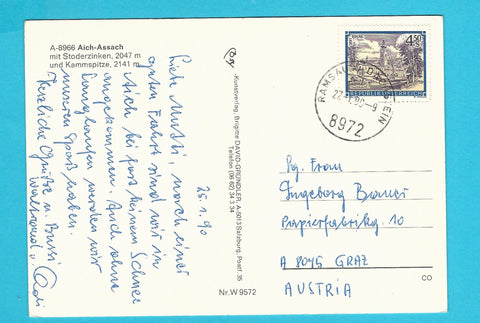 A-8966 Aich-Assach
mit Stoderzinken, 2047 m
und Kammspitze, 2141 m
25.1.90
Lieb Mutti, nach einer
guten Fahrt sind wir in
Aich bei fast keinem Schnee
angekommen. Auch ohne
Langlaufen werden wir
unseren Spaß haben.
Herzliche Grüße u. Bussi
Waltraud u.
-Kunstverlag, Brigitte DAVID-GRÜNDLER, A-5013 Salzburg, Postf. 35
Telefon (06 62) 34 3 34
Nr. W 9572
4.50
REPUBLIK ÖSTERREICH
RAMSAU AM DACHSTEIN
8972
Pg. Frau
Ingeborg Bauer
Papierfabrikg. 10
A 8045 GRAZ
AUSTRIA
CO